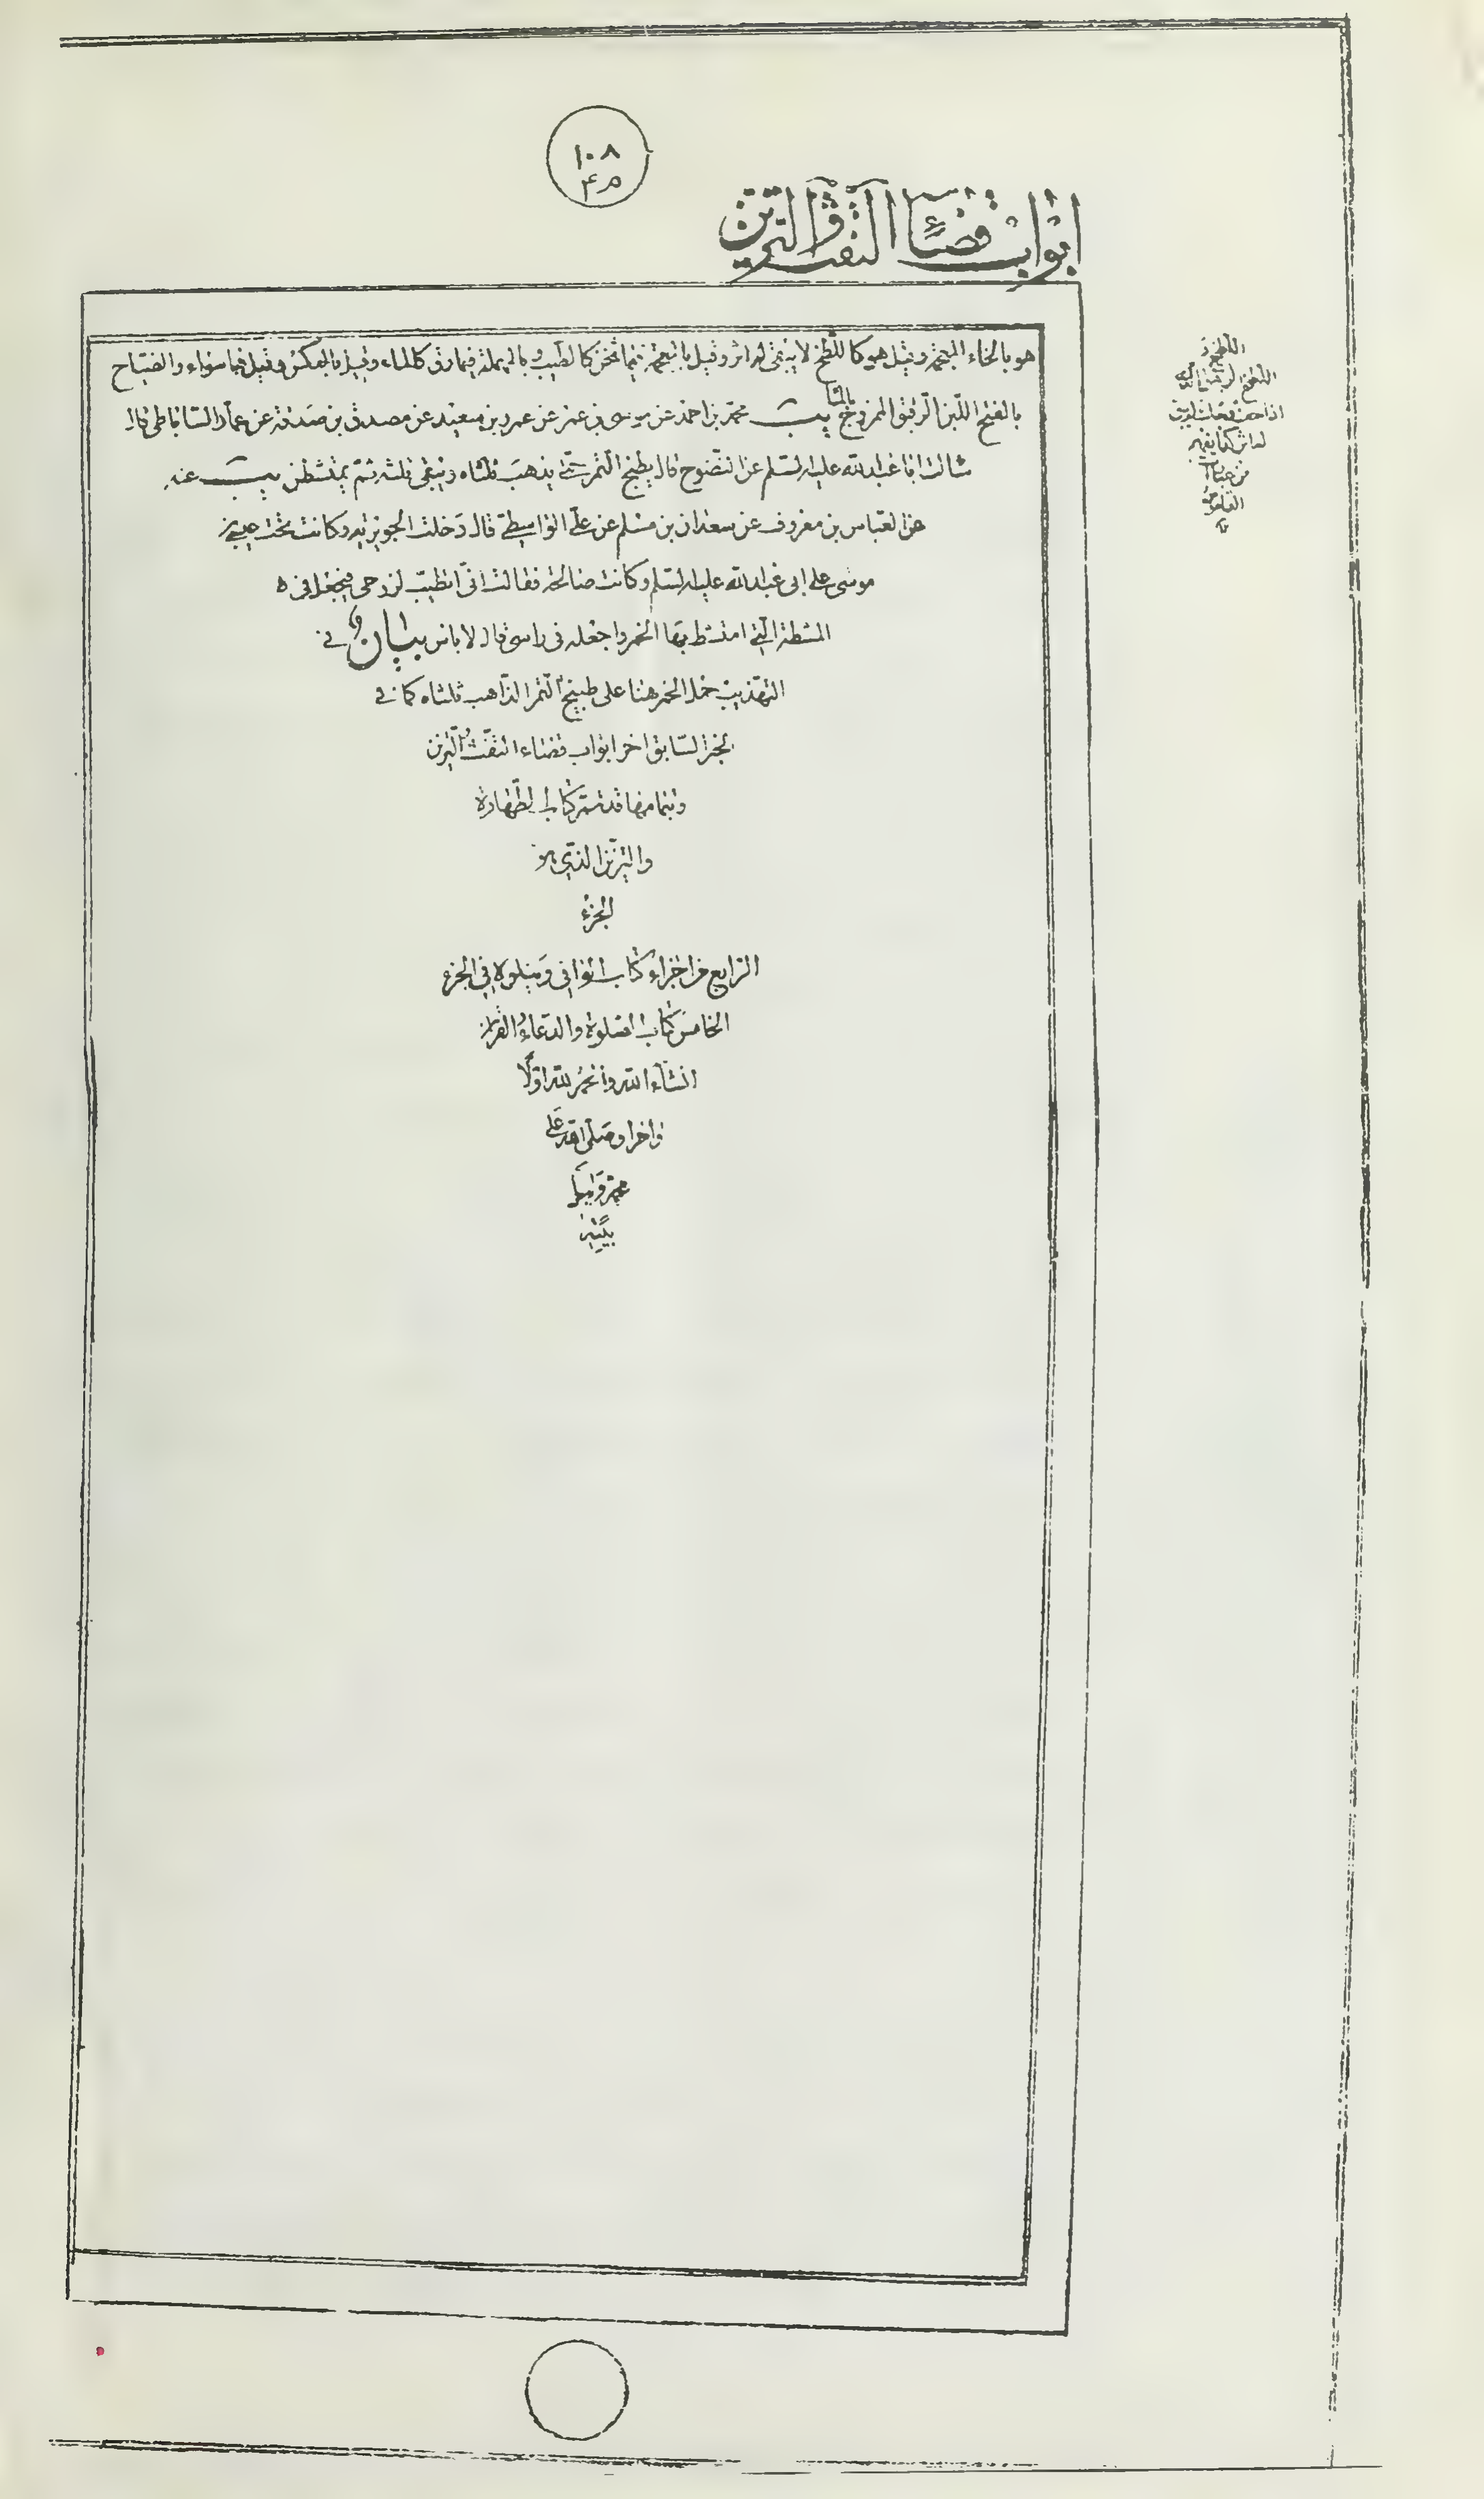 ١٠٨
ابواب قضاء التفث والتزين
هو بالخاء المعجمة وقيل هو كاللطخ لا يبقى له اثر وقيل بالمعجمة فيما ثخن كالطيب وبالمهملة فيما رق كالماء وقيل بالعكس وقيل هما سواء والضياح
بالفتح اللبن الرقيق الممزوج بالماء يب محمد بن احمد عن موسى بن عمر عن عمرو بن سعيد عن مصدق بن صدقة عن عمار الساباطي قال
سالت ابا عبد الله عليه السلم عن النضوح قال يطبخ التمر حتى يذهب ثلثاه ويبقى ثلثه ثم يمتشطن يب عنه
عن العباس بن معروف عن سعدان بن مسلم عن علي الواسطي قال دخلت الجويرية وكانت تحت عيسى بن
موسى على ابي عبد الله عليه السلم وكانت صالحة فقالت اني اتطيب لزوجي فيجعل في
المشطة التي امتشط بها الخمر واجعله في راسي قال لا باس بيان في
التهذيب حمل الخمر هنا على طبيخ التمر الذاهب ثلثاه كما في
الخبر السابق اخر ابواب قضاء التفث والتزين
وبتمامها قد تم كتاب الطهارة
والتزين الذي هو
الجزء
الرابع من اجزاء كتاب الوافي ويتلوه في الجزء
الخامس كتاب الصلوة والدعاء والقران
انشاء الله والحمد لله اولا
واخرا وصلى الله على
محمد واهل
بيته
اللطخ
اثر كما يفهم
من عبارة
القاموس